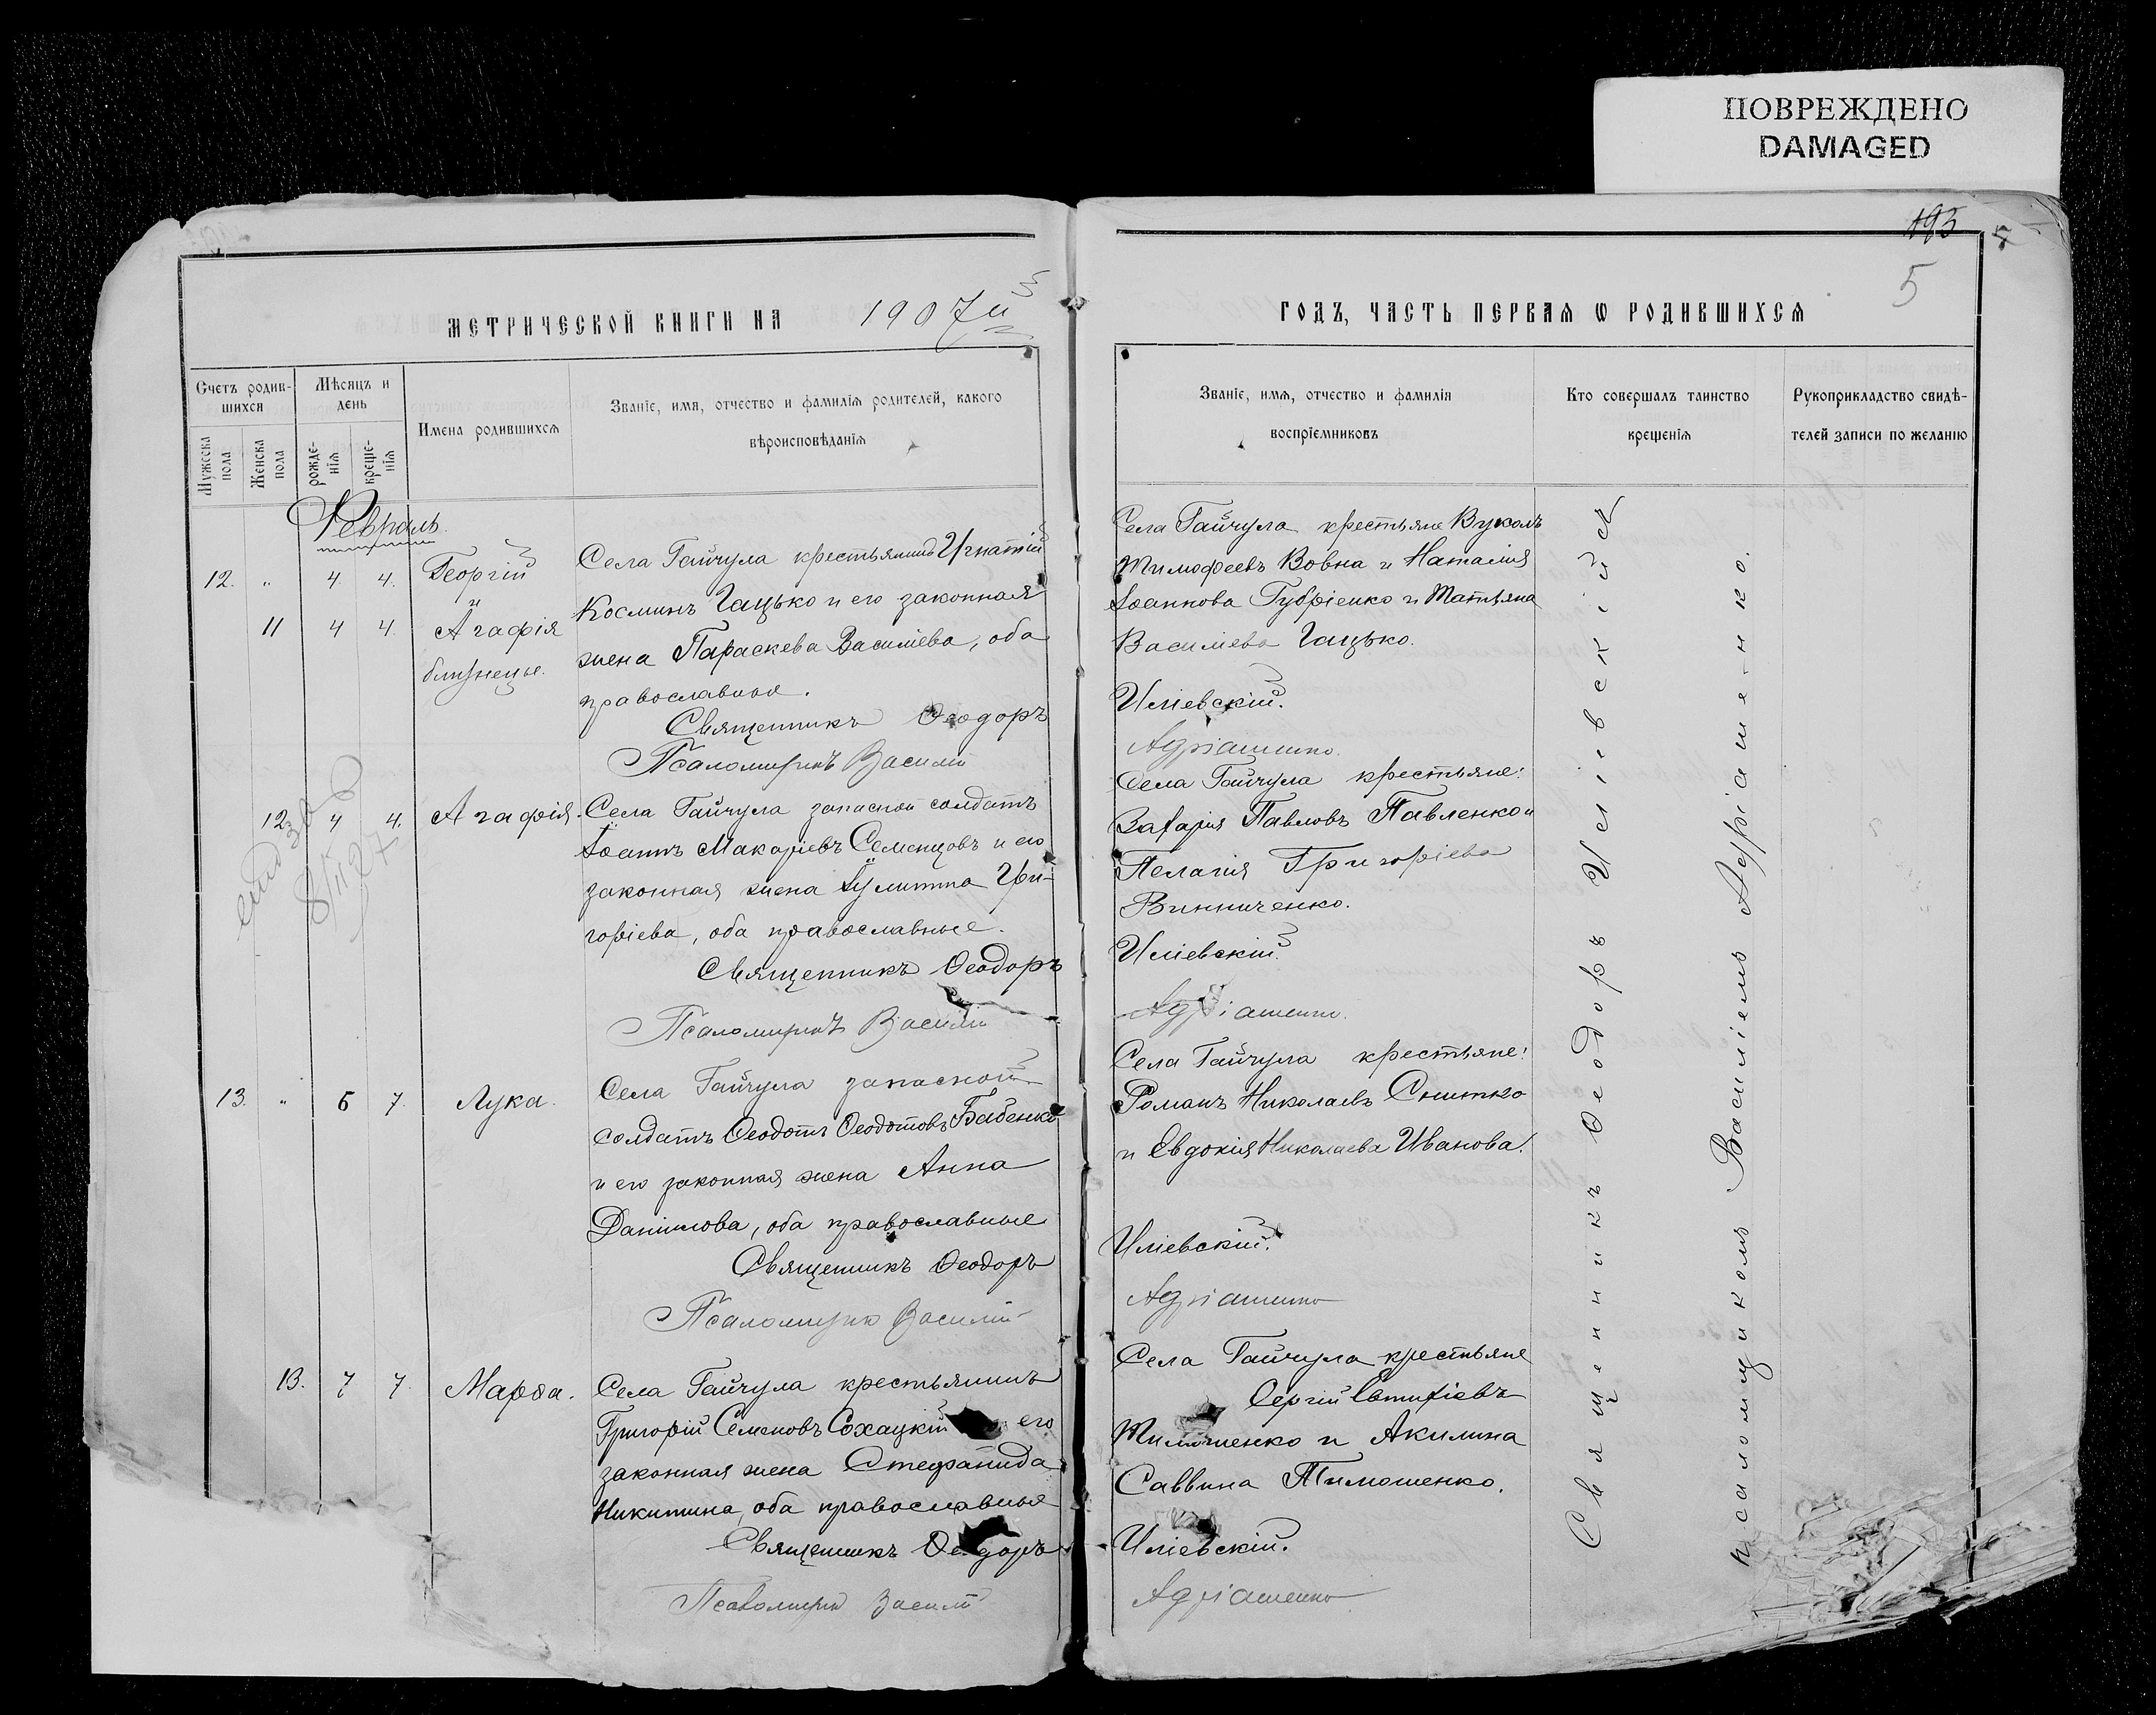 ПОВРЕЖДЕНО
DAMAGED
193
5
МЕТРИЧЕСКОЙ КНИГИ НА 1907й
Счетъ родив-
шихся
Мужеска
пола
Женска
пола
Мѣсяцъ и
день
рожде-
нія
креще-
нія
Имена родившихся
Званіе, имя, отчество и фамилія родителей, какого
вѣроисповѣданія
Февраль.
12. " 4 4. Георгій
и
11 4 4. Агафія
близнецы.
Села Гайчула крестьянинъ Игнатій
Косминъ Гацько и его законная
жена Параскева Василіева, оба
православные.
Священникъ Ѳеодоръ
Псаломщикъ Василій
12 4 4. Агафія.
Села Гайчула запасной солдатъ
Іоаннъ Макаріевъ Семенцовъ и его
законная жена Іулитта Гри-
горіева, оба православные.
Священникъ Ѳеодоръ
Псаломщикъ Василій
13. " 6 7. Лука.
Села Гайчула запасной
солдатъ Ѳеодотъ Ѳеодотовъ Бабенко
и его законная жена Анна
Даніилова, оба православные
Священникъ Ѳеодоръ
Псаломщикъ Василій
13. 7 7. Марѳа.
Села Гайчула крестьянинъ
Григорій Семеновъ Сохацкій его
законная жена Стефанида
Никитина, оба православные
Священникъ Ѳеодоръ
Псаломщикъ Василій
ГОДЪ, ЧАСТЬ ПЕРВАЯ Ѡ РОДИВШИХСЯ
Званіе, имя, отчество и фамилія
воспріемниковъ
Кто совершалъ таинство
крещенія
Рукоприкладство свидѣ-
телей записи по желанію
Села Гайчула крестьяне Вуколъ
Тимофеевъ Вовна и Наталія
Іоаннова Губріенко и Татьяна
Василіева Гацько.
Иліевскій.
Адріашенко.
Села Гайчула крестьяне:
Захарія Павловъ Павленко и
Пелагія Григоріева
Винниченко.
Иліевскій.
Адріашенко.
Села Гайчула крестьяне:
Романъ Николаевъ Снитко
и Евдокія Николаева Иванова.
Иліевскій.
Адріашенко
Села Гайчула крестьяне
Сергій Евтихіевъ
Тимошенко и Акилина
Саввина Тимошенко.
Иліевскій.
Адріашенко
Священникъ Ѳеодоръ Иліевскій
псаломщикомъ Василіемъ Адріашенко.